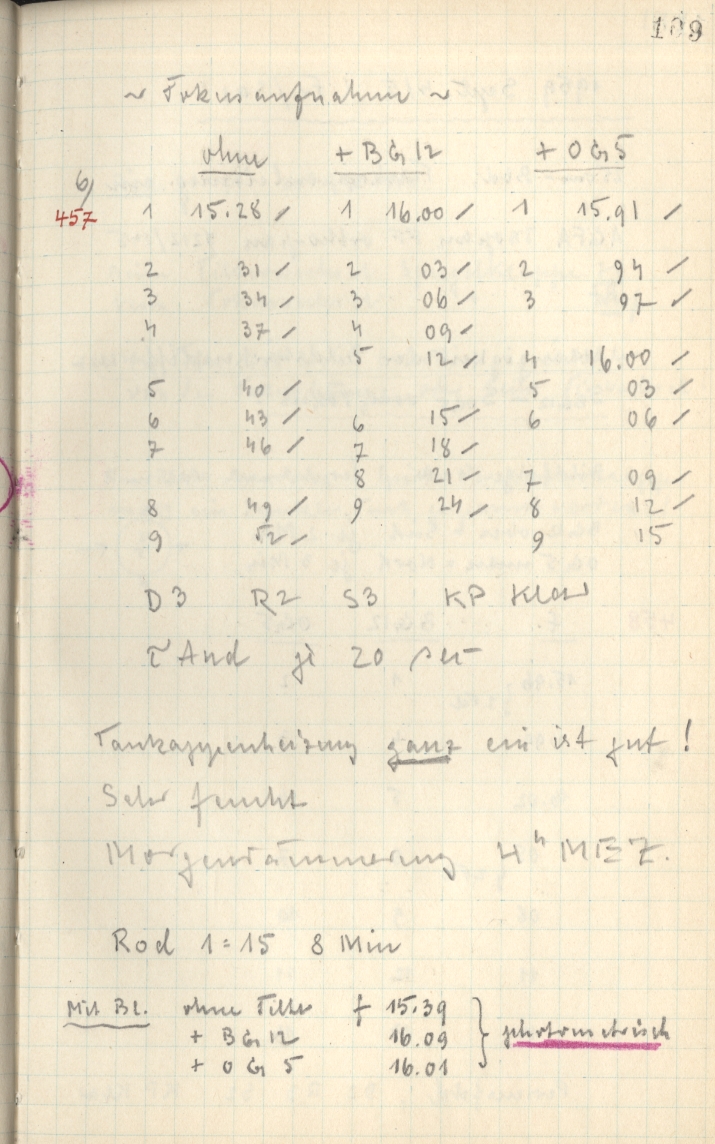 109
~ Fokusaufnahme ~
ohne + BG12 + OG5
6)
457 1 15.28 / 1 16.00 / 1 15.91 /
2 31 / 2 03 / 2 94 /
3 34 / 3 06 / 3 97 /
4 37 / 4 09 /
5 12 / 4 16.00 /
5 40 / 5 03 /
6 43 / 6 15 / 6 06 /
7 46 / 7 18 /
8 21 / 7 09 /
8 49 / 9 24 / 8 12 /
9 52 / 9 15
D3 R2 S3 KP Klar
And je 20 sec
Taukappenheizung ganz ein ist gut !
Sehr feucht
Morgendämmerung 4h MEZ.
Rod 1=15 8 Min
Mit Bl. ohne Filter f 15.39
+ BG12 16.09
+ OG 5 16.01
photometrisch